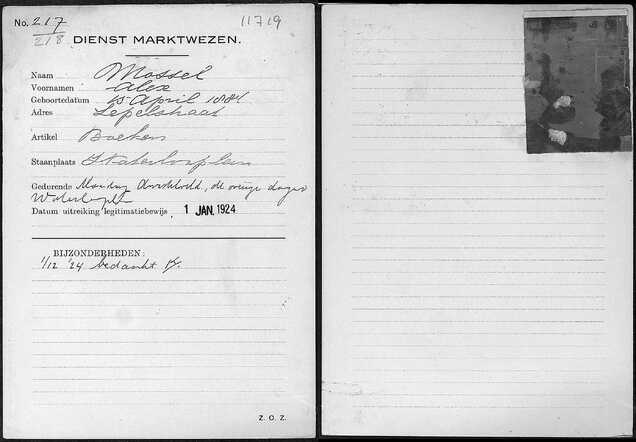 No. 217 11719
218 DIENST MARKTWEZEN.
Naam Mossel
Voornamen Alex
Geboortedatum 15 April 1884
Adres Lepelstraat
Artikel Boeken
Staanplaats Waterlooplein
Gedurende Maandag de overige dagen
Datum uitreiking legitimatiebewijs, 1 JAN. 1924
BIJZONDERHEDEN:
1/12 '24 bedankt
Z. O. Z.